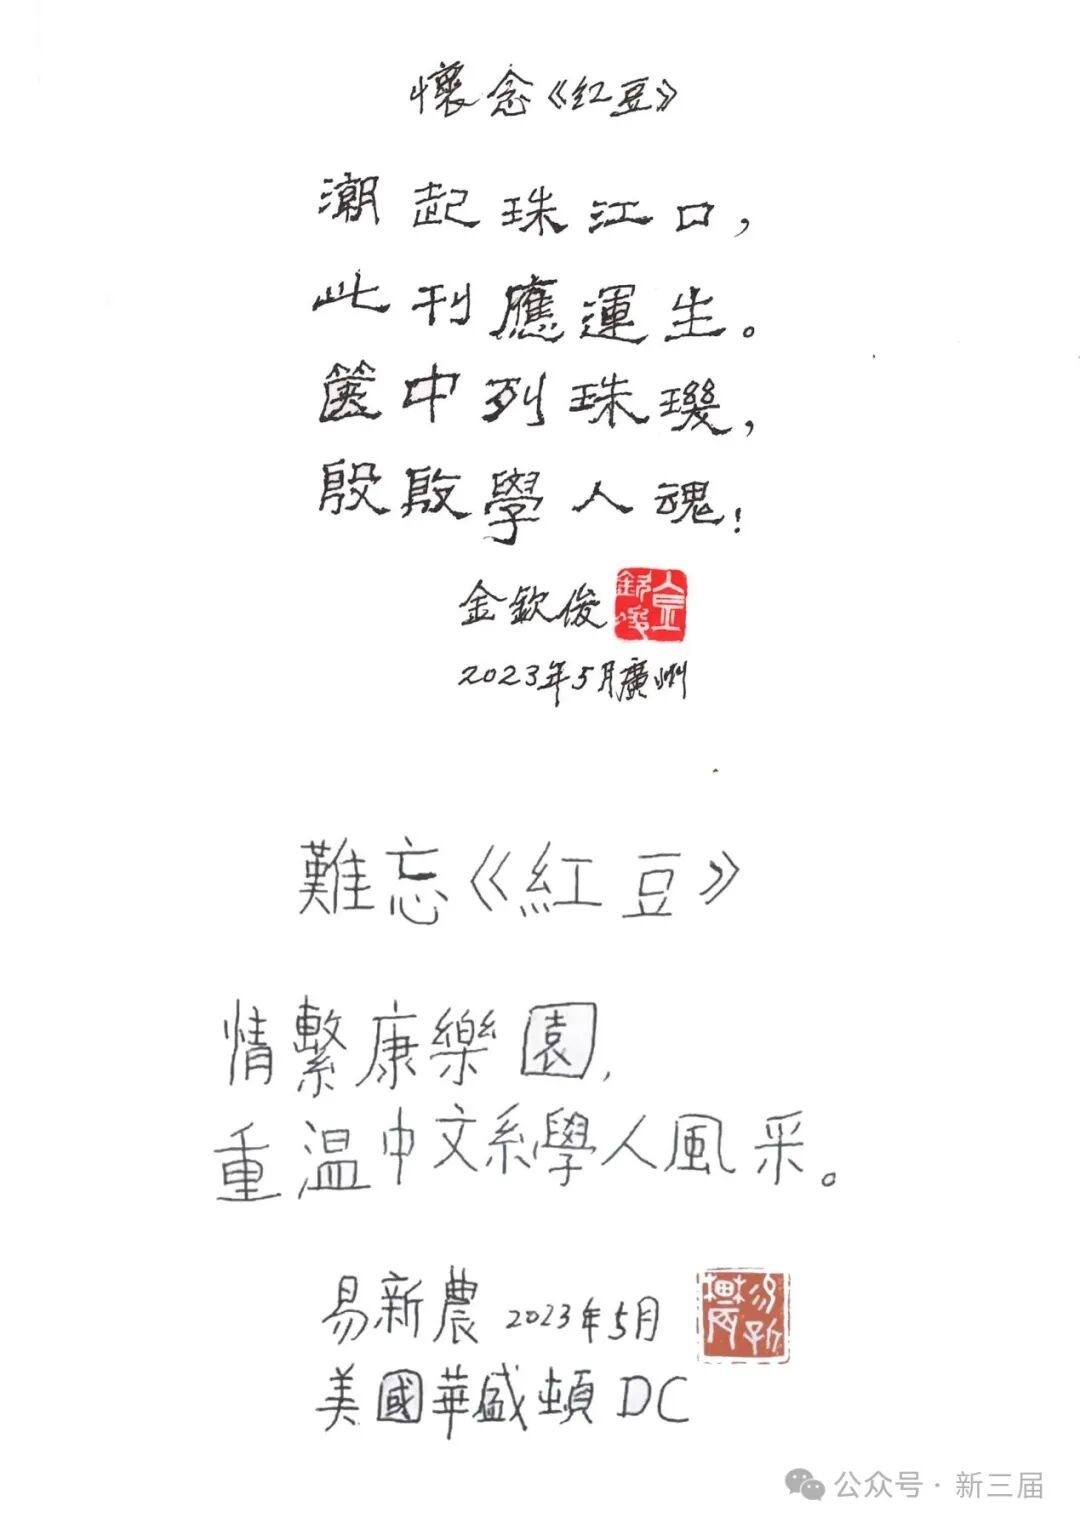 懷念《红豆》
潮起珠江口，
此刊應運生。
篋中列珠璣，
殷殷學人魂！
金欽俊
2023年5月廣州
難忘《紅豆》
情繫康樂園，
重温中文系學人風采。
易新農 2023年5月
美國華盛頓DC
公众号·新三届